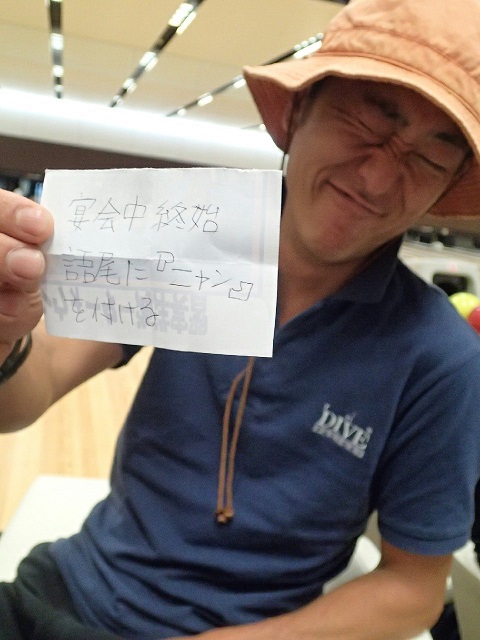 宴会中 終始
語尾に『ニャン』
を付ける
DIVE